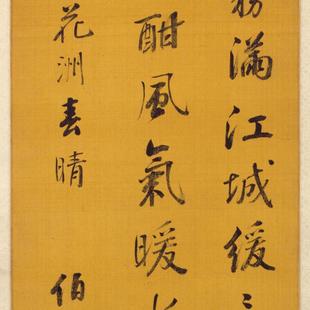 滿江城緩
酣風氣暖
花洲春晴 伯